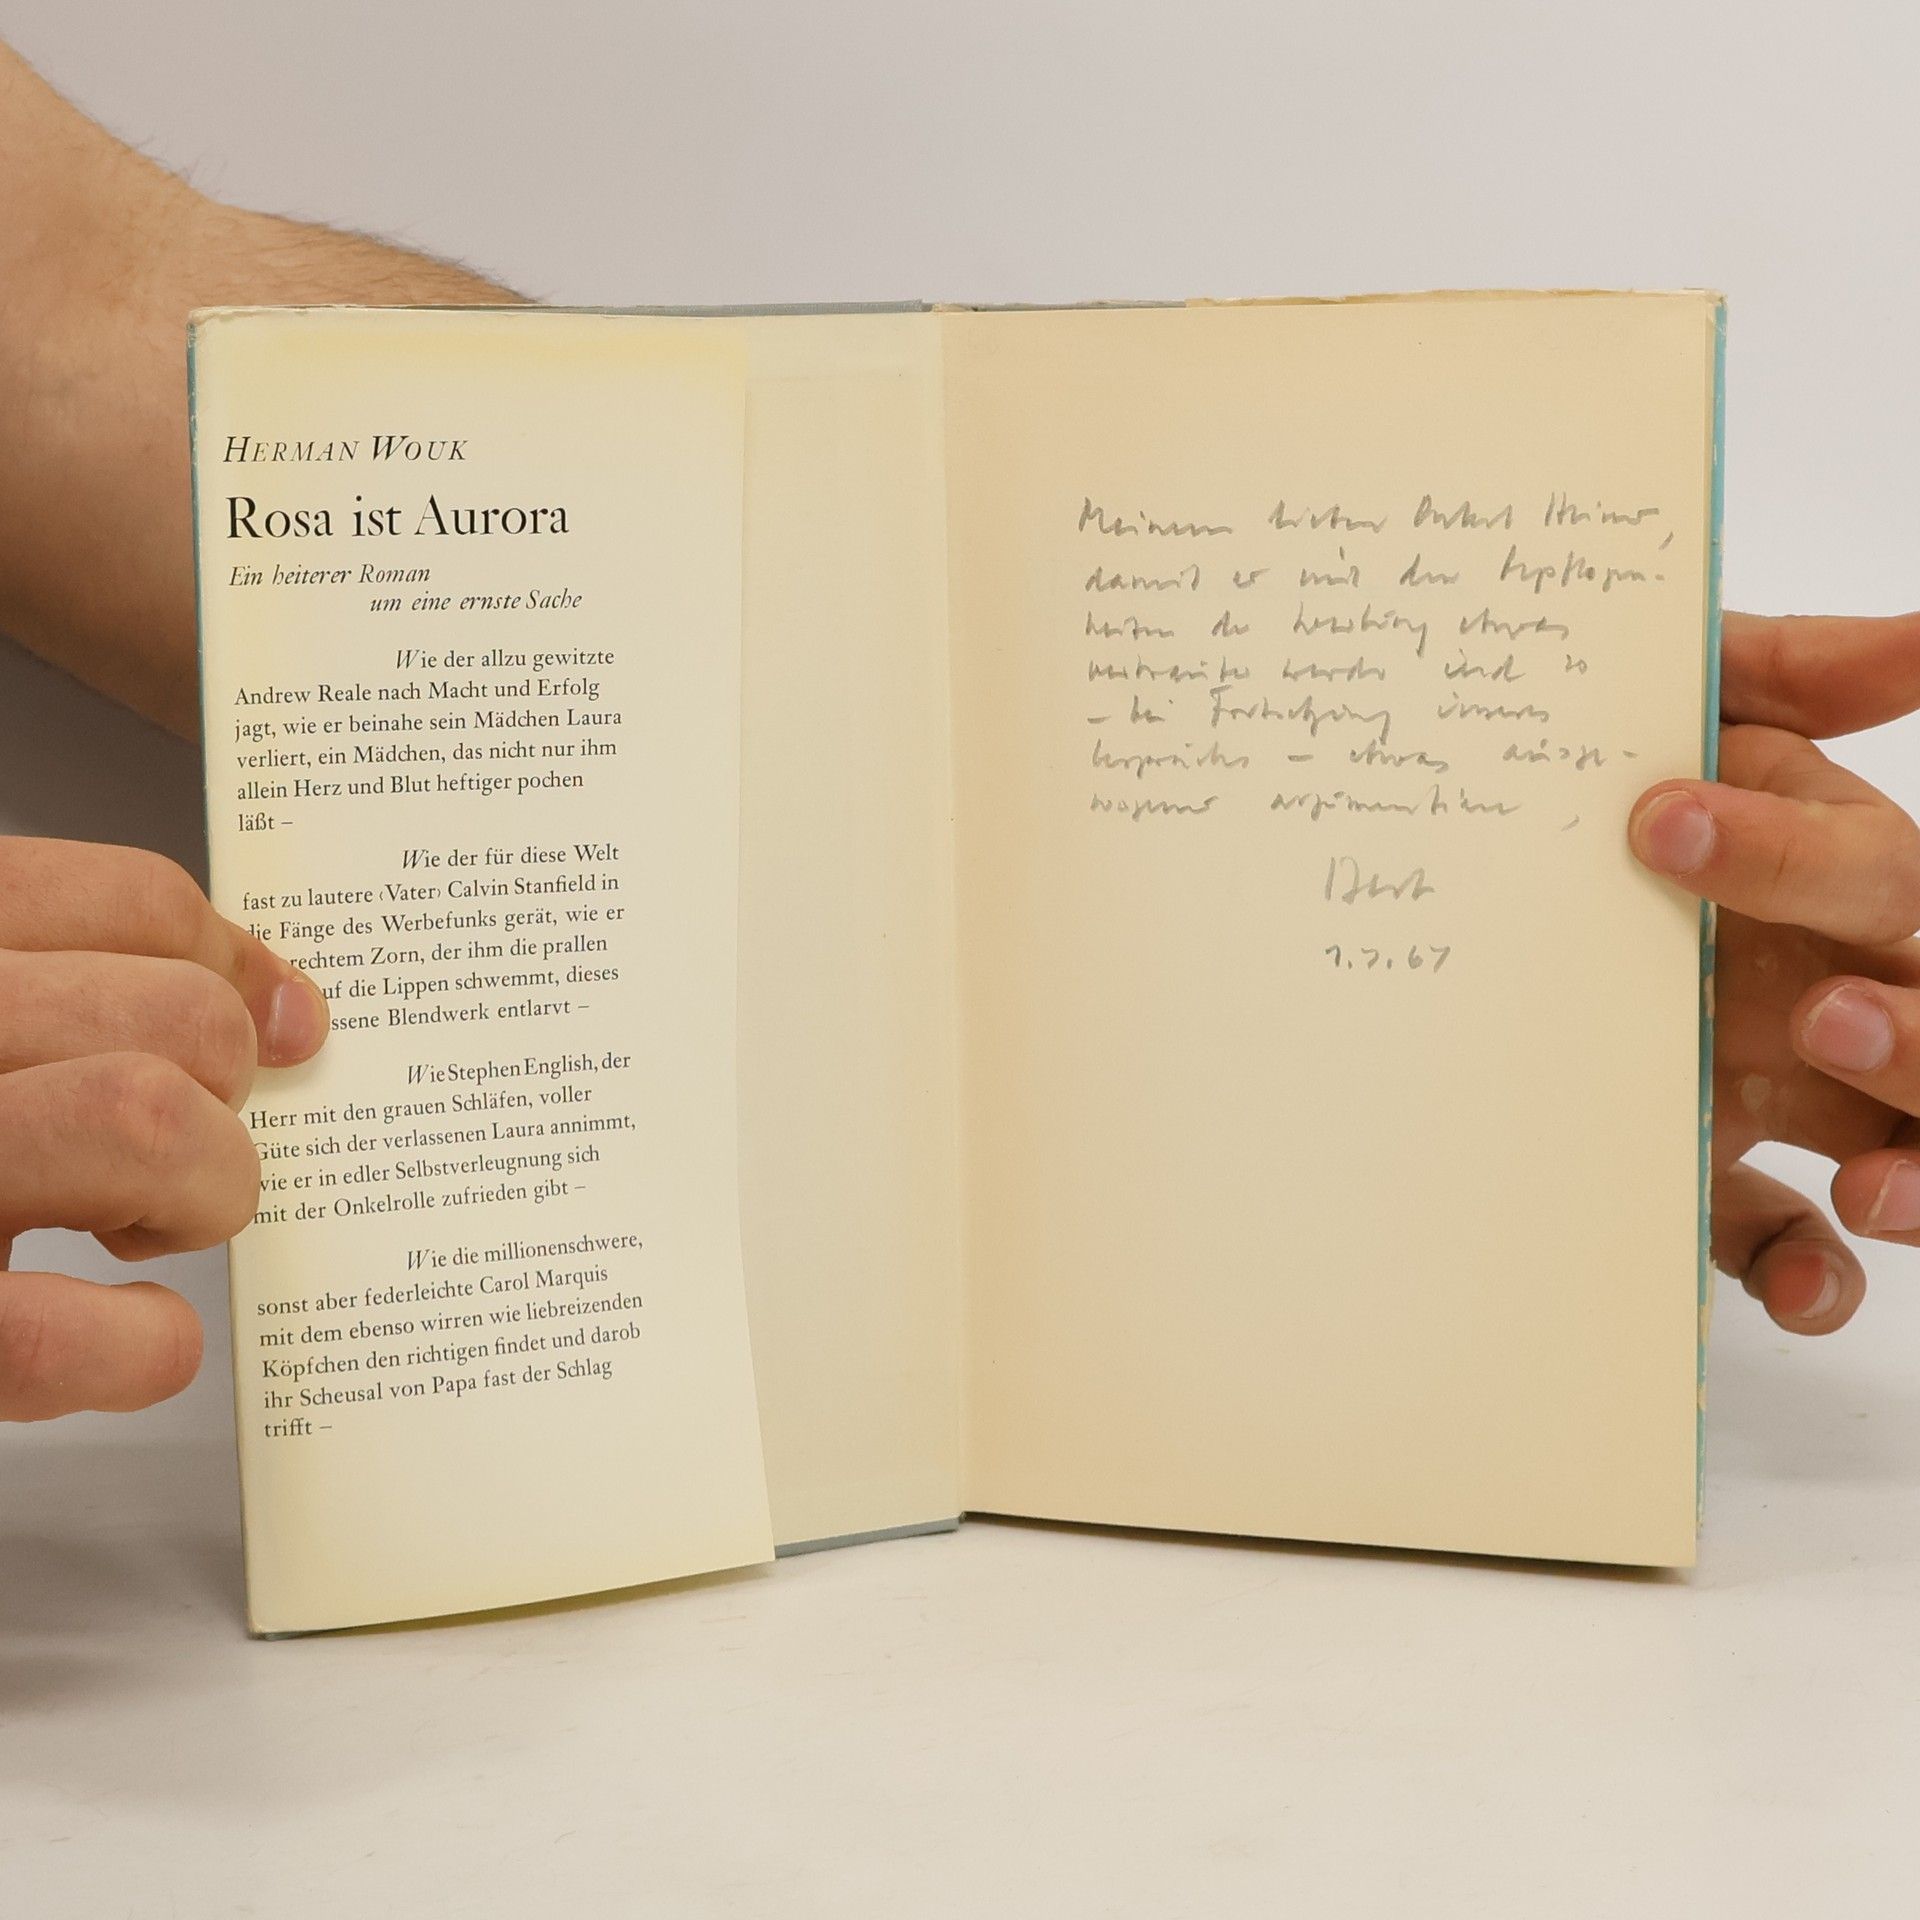 HERMAN WOUK
Rosa ist Aurora
Ein heiterer Roman
um eine ernste Sache
Wie der allzu gewitzte
Andrew Reale nach Macht und Erfolg
jagt, wie er beinahe sein Mädchen Laura
verliert, ein Mädchen, das nicht nur ihm
allein Herz und Blut heftiger pochen
läßt –
Wie der für diese Welt
fast zu lautere ‹Vater› Calvin Stanfield in
die Fänge des Werbefunks gerät, wie er
rechtem Zorn, der ihm die prallen
uf die Lippen schwemmt, dieses
ssene Blendwerk entlarvt –
Wie Stephen English, der
Herr mit den grauen Schläfen, voller
Güte sich der verlassenen Laura annimmt,
wie er in edler Selbstverleugnung sich
mit der Onkelrolle zufrieden gibt –
Wie die millionenschwere,
sonst aber federleichte Carol Marquis
mit dem ebenso wirren wie liebreizenden
Köpfchen den richtigen findet und darob
ihr Scheusal von Papa fast der Schlag
trifft –
Meinem lieben Onkel Heiner,
damit er mit den Gepflogen-
heiten der Werbung etwas
vertrauter werde und so
– bei Fortsetzung unseres
Gespräches – etwas ausge-
wogener argumentiere,
1.7.67